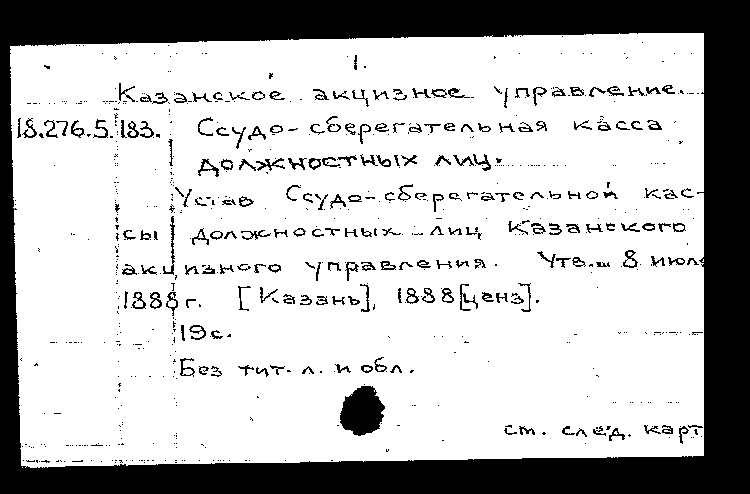 1.
Казанское акцизное управление.
18.276.5.183. Ссудо-сберегательная касса
должностных лиц.
Устав Ссудо-сберегательной кас-
сы должностных лиц Казанского
акцизного управления. Утв. 8 июля
1888 г. [Казань], 1888 [ценз].
19 с.
Без тит. л. и обл.
см. след. карт